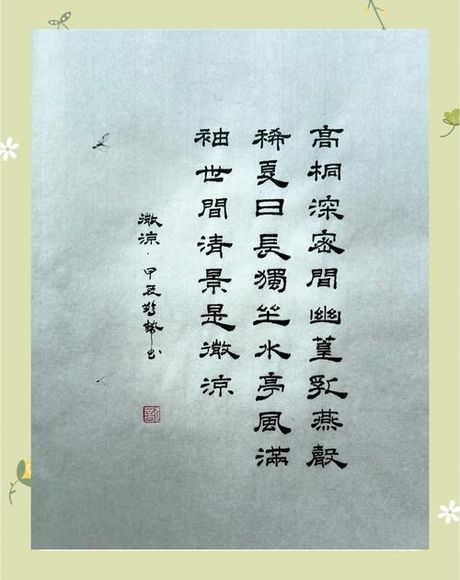 高桐深密間幽篁乳燕聲
稀夏日長獨坐水亭風滿
袖世間清景是微涼
微涼·甲辰书